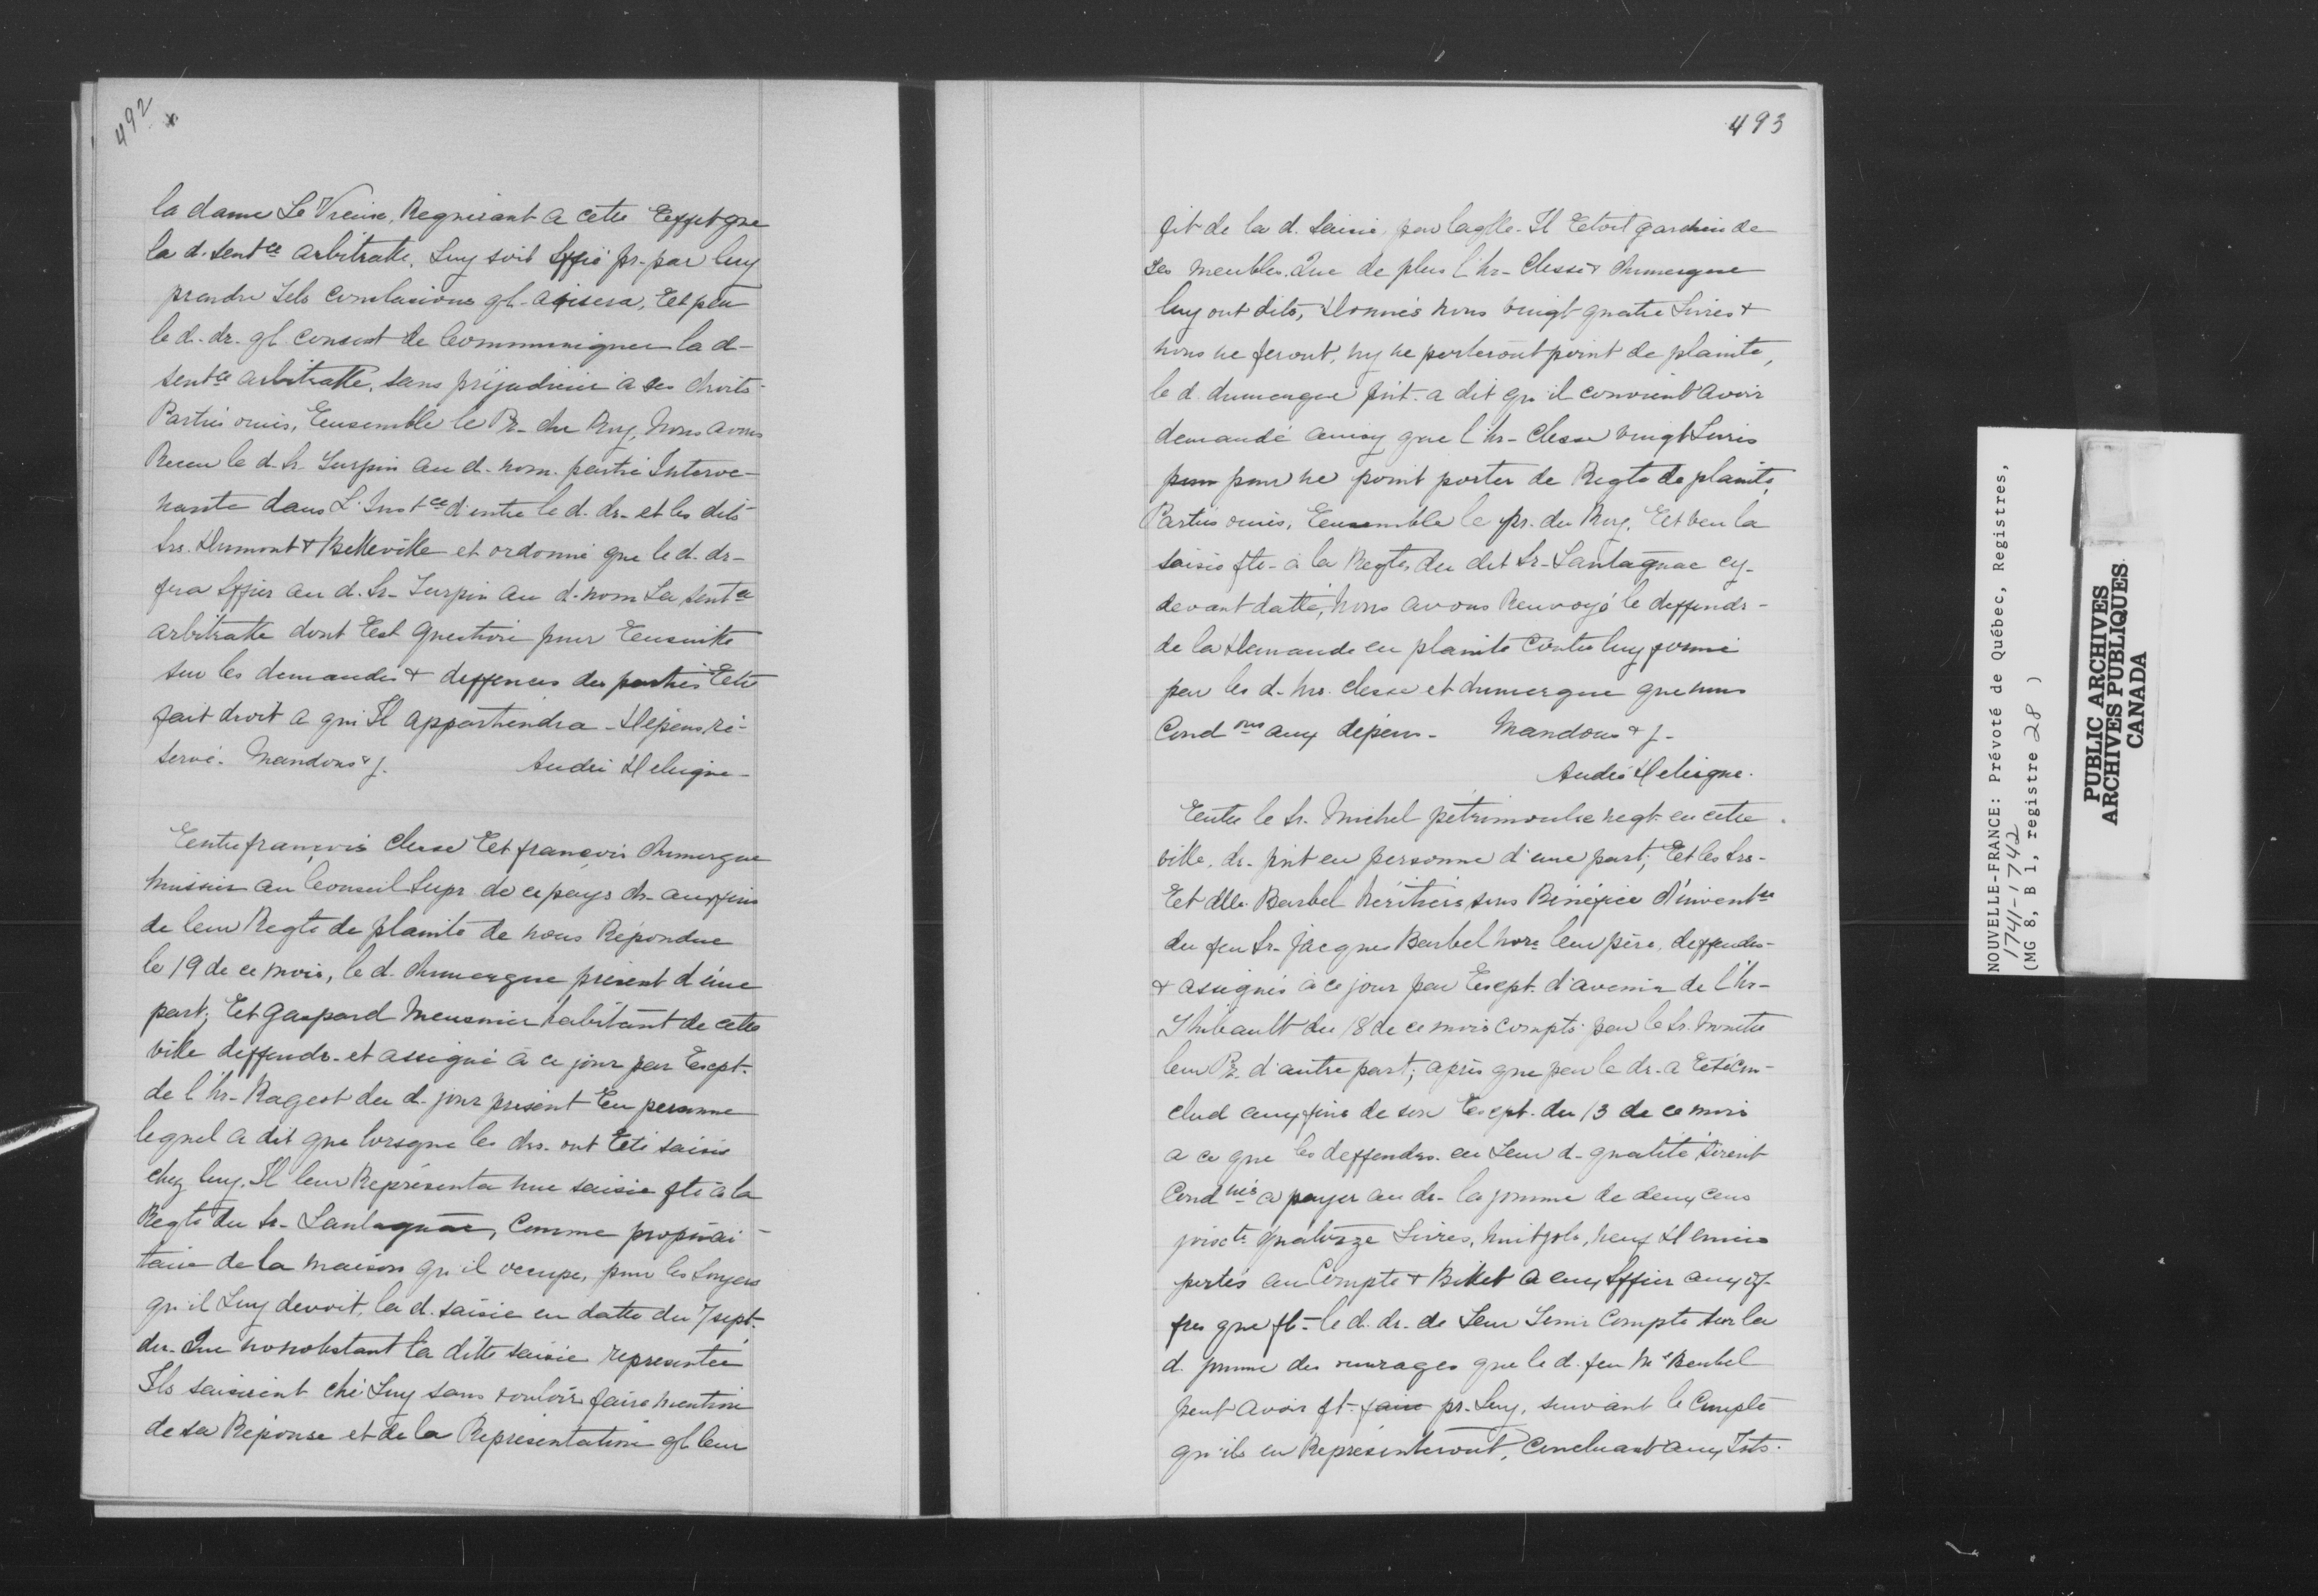 492 x
la dame Le Vieux, Requerant a cette Eeffet que
la d. sentce arbitralle, Luy soit Sffié pr. par luy
prendre Tels conclusions ql. avisera, Eet par
le d. dr. ql consent de Communiquer la d
sentce arbitralle, sans préjudicier à ses droits
Parties ouies, Eensemble le Pr. du Roy, Nous avons
Receu le d. Sr. Turpin au d. nom. partie Interve-
nante dans L'Instce d'entre le d. dr. et les dits
Srs. Dumont & Belleville et ordonné que le d. dr.
fera Sffier au d. Sr. Turpin au d. nom La sentce
arbitralle dont Eest question pour Eensuitte
sur les demandes & deffences des parties Eetre
fait droit a qui Il appartiendra - Dépens ré-
servé. Mandons &. André Deleigne -
Eentre françois Clesse Eet françois dumergue
huissier au Conseil Supr. de ce pays drs. aux fins
de leur Reqte de plainte de nous Répondue
le 19 de ce mois, le d. dumergue présent d'une
part; Eet Gaspard Meusnier habitant de cette
ville deffendr. et assigné à ce jour par Eexpt.
de l'hr. Rageot du d. jour présent Een personne
lequel a dit que lorsque les drs. ont Eeté saisir
chez luy, Il leur Représenta une saisie fte à la
Reqte du Sr. Lantagnac, Comme propriai-
taire de la maison qu'il occupe, pour les Loyers
qu'il Luy devoit, la d. saisie en datte du 7 sept.
der. Que nonobstant la ditte saisie représentée
Ils saisirent ché Luy sans vouloir faire mention
de sa Réponse et de la Représentation ql leur
493
fit de la d. Saisie, par laqlle. Il Eetoit gardien de
ses meubles. Que de plus l'hr. Clesse & dumergue
luy ont dits, Donnés nous vingt quatre Livres &
nous ne feront, ny ne porteront point de plainte,
le d. dumergue pnt. a dit qu'il convient avoir
demandé ainsy que l'hr. Clesse vingt Livres
pour ne point porter de Reqte de plainte,
Parties ouies, Eensemble le pr. du Roy, Eet veu la
saisie fte. à la Reqte, du dit Sr. Lantagnac cy-
devant datté, Nous avons Renvoyé le deffendr.
de la Demande en plainte Contre luy formé
par les d. hrs. Clesse et dumergue que nous
Condons aux dépens. Mandons &.
André Deleigne.
Eentre le Sr. Michel pétrimoulx negt. en cette
ville, dr. pnt en personne d'une part; Eet les Srs.
Eet dlle. Barbel héritiers sous Bénéfice d'invente
du feu Sr. Jacques Barbel nore leur père, deffendrs.
& assignés à ce jour par Eexpt. d'avenir de l'hr.
Thibault du 18 de ce mois Compte. par le Sr. Nouette
leur Pr. d'autre part; après que par le dr. a Eeté con-
clud aux fins de son Eexpt. du 13 de ce mois
a ce que les deffendrs. en Leur d. qualité soient
Condnés a payer au dr. la somme de deux cens
soixte. quatorze Livres, huit sols, neuf Deniers
portés au Compte & Billet a eux Sffier aux of-
fres que ft. le d. dr. de Leur Tenir Compte sur la
d. somme des ouvrages que le d. feu Me Barbel
peut avoir ft. faire pr. Luy, suivant le Compte
qu'ils en Représenteront, Concluant aux Ints.
NOUVELLE-FRANCE: Prévoté de Québec, Registres,
1741-1742
(MG 8, B 1, registre 28 )
PUBLIC ARCHIVES
ARCHIVES PUBLIQUES
CANADA